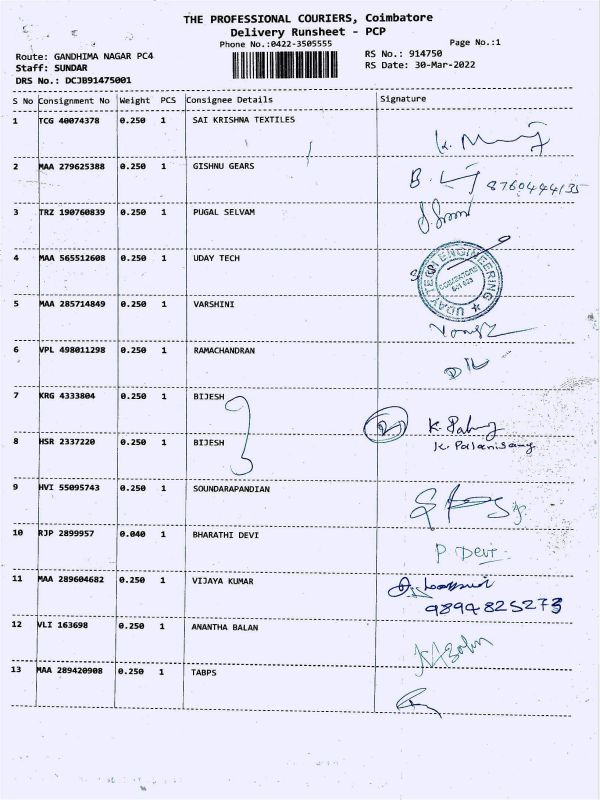 THE PROFESSIONAL COURIERS, Coimbatore
Delivery Runsheet - PCP
Phone No.:0422-3505555
Page No.:1
Route: GANDHIMA NAGAR PC4
RS No.: 914750
Staff: SUNDAR
RS Date: 30-Mar-2022
DRS No.: DCJB91475001
S No Consignment No Weight PCS Consignee Details Signature
1 TCG 40074378 0.250 1 SAI KRISHNA TEXTILES
2 MAA 279625388 0.250 1 GISHNU GEARS 8760444135
3 TRZ 190760839 0.250 1 PUGAL SELVAM
4 MAA 565512608 0.250 1 UDAY TECH
UDAY TECH ENGINEERING
COIMBATORE
5 MAA 285714849 0.250 1 VARSHINI
6 VPL 498011298 0.250 1 RAMACHANDRAN
7 KRG 4333804 0.250 1 BIJESH
8 HSR 2337220 0.250 1 BIJESH
K. Palanisamy
9 HVI 55095743 0.250 1 SOUNDARAPANDIAN
10 RJP 2899957 0.040 1 BHARATHI DEVI P. Devi
11 MAA 289604682 0.250 1 VIJAYA KUMAR
9894825273
12 VLI 163698 0.250 1 ANANTHA BALAN
13 MAA 289420908 0.250 1 TABPS